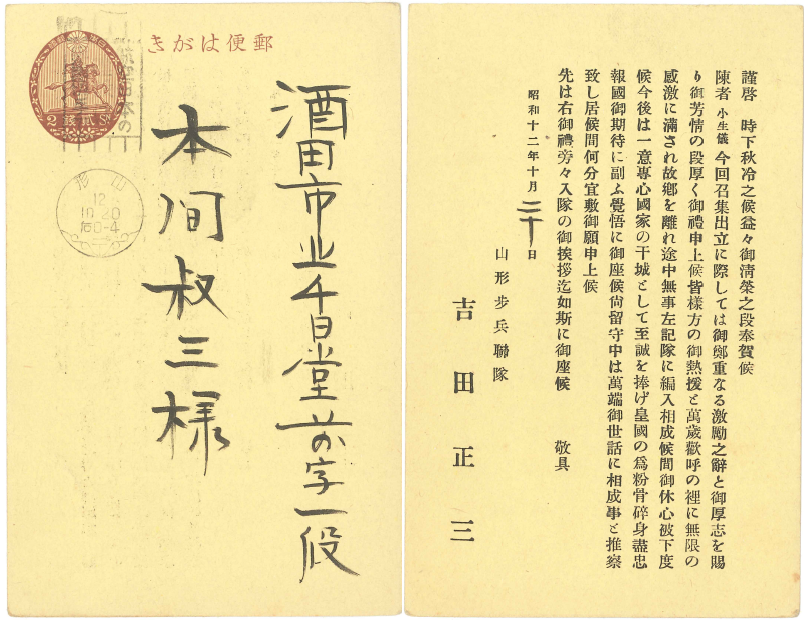 郵便はがき
酒田市北千日堂前字一
本間叔三様
2
SN
山形
12
10.20
后0-4
謹啓 時下秋冷之候益々御清榮之段奉賀候
陳者小生儀今回召集出立に際しては御鄭重なる激勵之辭と御厚志を賜
り御芳情の段厚く御禮申上候皆樣方の御熱援と萬歲歡呼の裡に無限の
感激に滿され故鄉を離れ途中無事左記隊に編入相成候間御休心被下度
候今後は一意專心國家の干城として至誠を捧げ皇國の爲粉骨碎身盡忠
報國御期待に副ふ覺悟に御座候尙留守中は萬端御世話に相成事と推察
致し居候間何分宜敷御願申上候
先は右御禮旁々入隊の御挨拶迄如斯に御座候 敬具
昭和十二年十月二十日
山形步兵聯隊
吉田正三